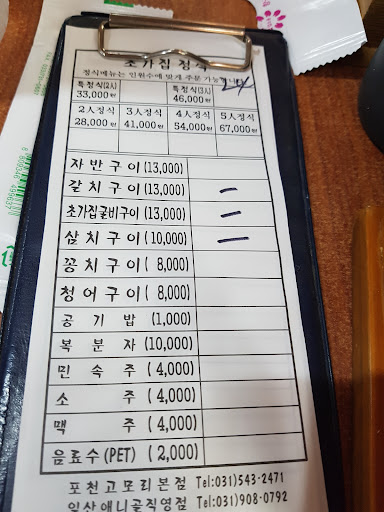 초가집 정식
정식메뉴는 인원수에 맞게 주문 가능합니다
특정식(2人) 특정식(3人)
33,000원 46,000원
2人정식 3人정식 4人정식 5人정식
28,000원 41,000원 54,000원 67,000원
자반구이 (13,000)
갈치구이 (13,000)
초가집굴비구이 (13,000)
삼치구이 (10,000)
꽁치구이 ( 8,000)
청어구이 ( 8,000)
공기밥 (1,000)
복분자 (10,000)
민속주 ( 4,000)
소주 ( 4,000)
맥주 ( 4,000)
음료수(PET) ( 2,000)
포천고모리본점 Tel:031)543-2471
일산애니골직영점 Tel:031)908-0792